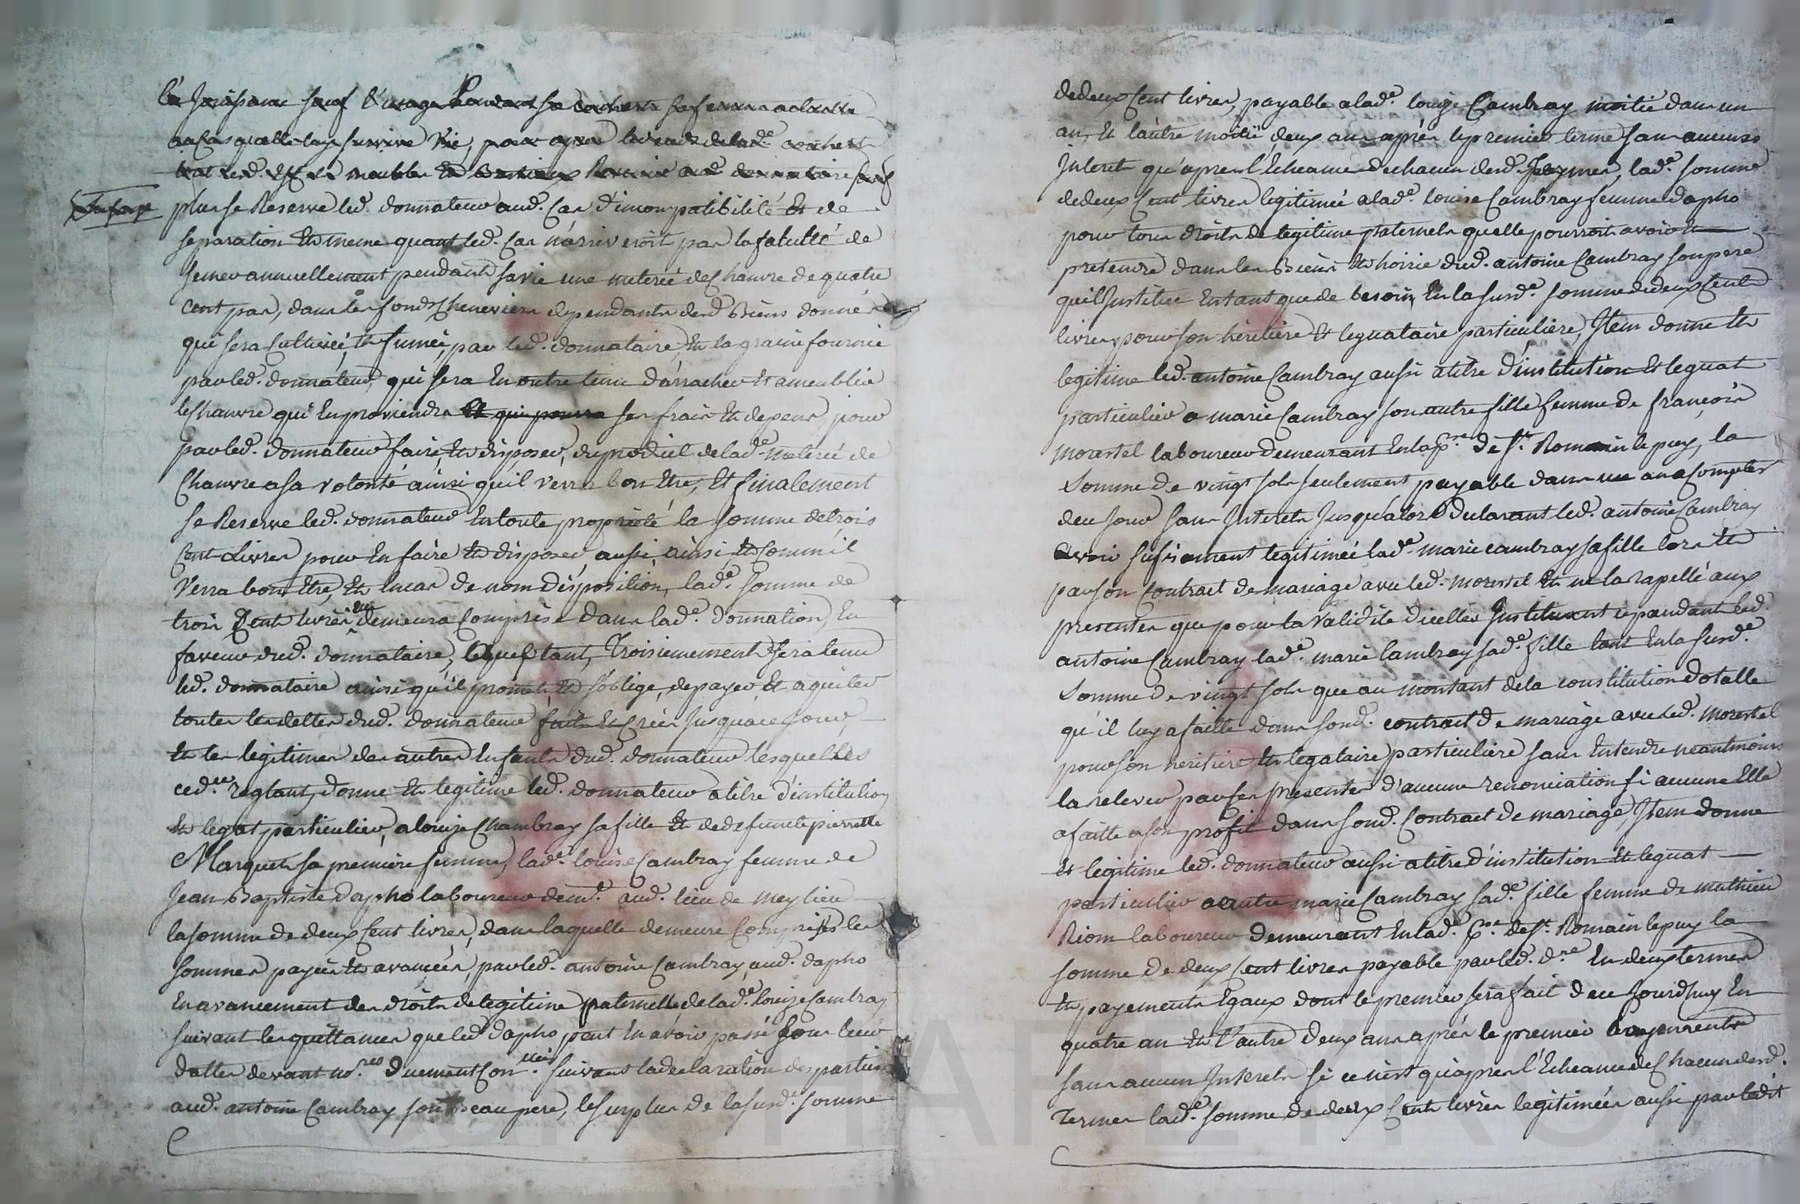 la jouissance sauf l'usage pendant sa
au cas quelle luy survive vie, pour que lad.e
led. meubles et bestiaux donnataire sauf
plus se Reserve led. donnateur aud. cas d'incompatibilité Et de
separation Et meme quant led. cas n'arriveroit pas la faculté de
semer annuellement pendant sa vie une meterée de Chanvre de quatre
cent pas, dans les fonds Cheneviers dependants desd. Biens donnés
qui sera Cultivée Et fumée par led. donnataire, Et la graine fournie
par led. donnateur, qui sera En outre tenu d'arracher Et ameublir
le Chanvre qui En proviendra Et qui pourra ses frais Et depens, pour
par led. donnateur faire Et disposer, du produit de lad.e meterée de
Chanvre a sa volonté ainsi qu'il verra bon Etre, Et finalement
se Reserve led. donnateur En toute propriété la somme de trois
Cent Livres pour En faire Et disposer aussi ainsi Et comme il
Verra bon Etre, Et En cas de non disposition, lad.e somme de
trois Cent livres demeura Comprise dans lad.e donnation En
faveur dud. donnataire, lequel tant, Troisiemement sera tenu
led. donnataire ainsi qu'il promet Et s'oblige, de payer Et aquiter
toutes les dettes dud. donnateur faites Et crées jusqu'a ce jour,
Et les legitimes des autres Enfants dud. donnateur lesquelles
reglant, donne Et legitime led. donnateur a titre d'institution
Et legat particulier, a louise Chambray sa fille Et de defunte pierrette
Marquet sa premiere femme, lad.e louise Cambray femme de
Jean Baptiste Dapho laboureur dem.t aud. lieu de meylieu
la somme de deux Cent livres, dans laquelle demeure Compris les
sommes payées Et avancées par led. antoine Cambray aud. dapho
En avancement des droits de legitime paternelle de lad.e louise Cambray
suivant les quittances que led. Dapho peut En avoir passé sous leur
datte devant no.res Suivant la declaration des parties
aud. antoine Cambray son beau pere, le surplus de la susd.e somme
de deux Cent livres, payable a lad.e louise Cambray moitié dans un
an, Et l'autre moitié deux ans après le premier terme sans aucuns
Interet qu'apres l'Echeance de chacun desd. termes, lad.e somme
de deux Cent livres legitimée a lad.e louise Cambray femme Dapho
pour tous droits de legitime paternels quelle pourroit avoir
pretendre dans les Biens Et hoirie dud. antoine Cambray son pere
qu'il Institue En tant que de besoin En la susd.e somme de deux Cents
livres pour son héritiere Et leguataire particuliere, Item donne Et
legitime led. antoine Cambray aussi a titre d'institution Et leguat
particulier a marie Cambray son autre fille femme de françois
morestel laboureur demeurant En la p.sse de S.t Romain le puy, la
Somme de vingt sols seulement payable dans un an a Compter
de ce jour sans Interets jusqu'alors declarant led. antoine Cambray
avoir sufisament legitimée lad.e marie cambray sa fille lors Et
par son Contract de mariage avec led. morestel Et ne la rapelle aux
presentes que pour la validité d'icelles Instituant cependant led.
antoine Cambray lad.e marie Cambray sad.e fille tant En la susd.e
Somme de vingt sols que au montant de la constitution dotalle
qu'il luy a faitte dans sond. contract de mariage avec led. morestel
pour son heritiere Et legataire particuliere sans Entendre neantmoins
la relever par ses presentes d'aucune renonciation si aucune Elle
a faitte a son profit dans sond. Contract de mariage, Item donne
Et legitime led. donnateur aussi a titre d'institution Et leguat
particulier a autre marie Cambray sad.e fille femme de mathieu
Riom laboureur demeurant En lad. p.sse de S.t Romain le puy la
somme de deux Cent livres payable par led. d.re En deux termes
Et payements Egaux dont le premier sera fait de ce jourd'huy En
quatre an Et l'autre deux ans après le premier payement
sans aucun Interets si ce n'est qu'apres l'Echeance de Chacun desd.
Termes lad.e somme de deux Cents livres legitimées aussi par ledit